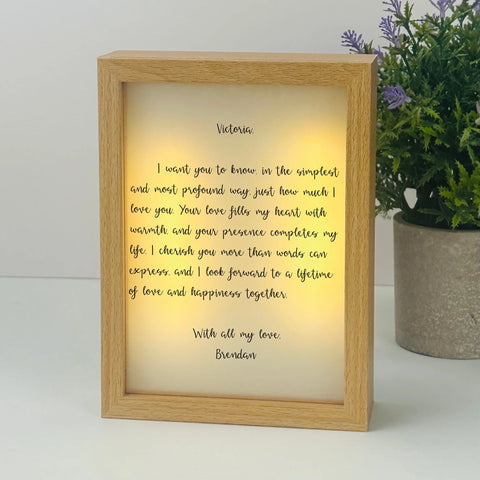 Victoria,
I want you to know, in the simplest
and most profound way, just how much I
love you. Your love fills my heart with
warmth, and your presence completes my
life. I cherish you more than words can
express, and I look forward to a lifetime
of love and happiness together.
With all my love,
Brendan